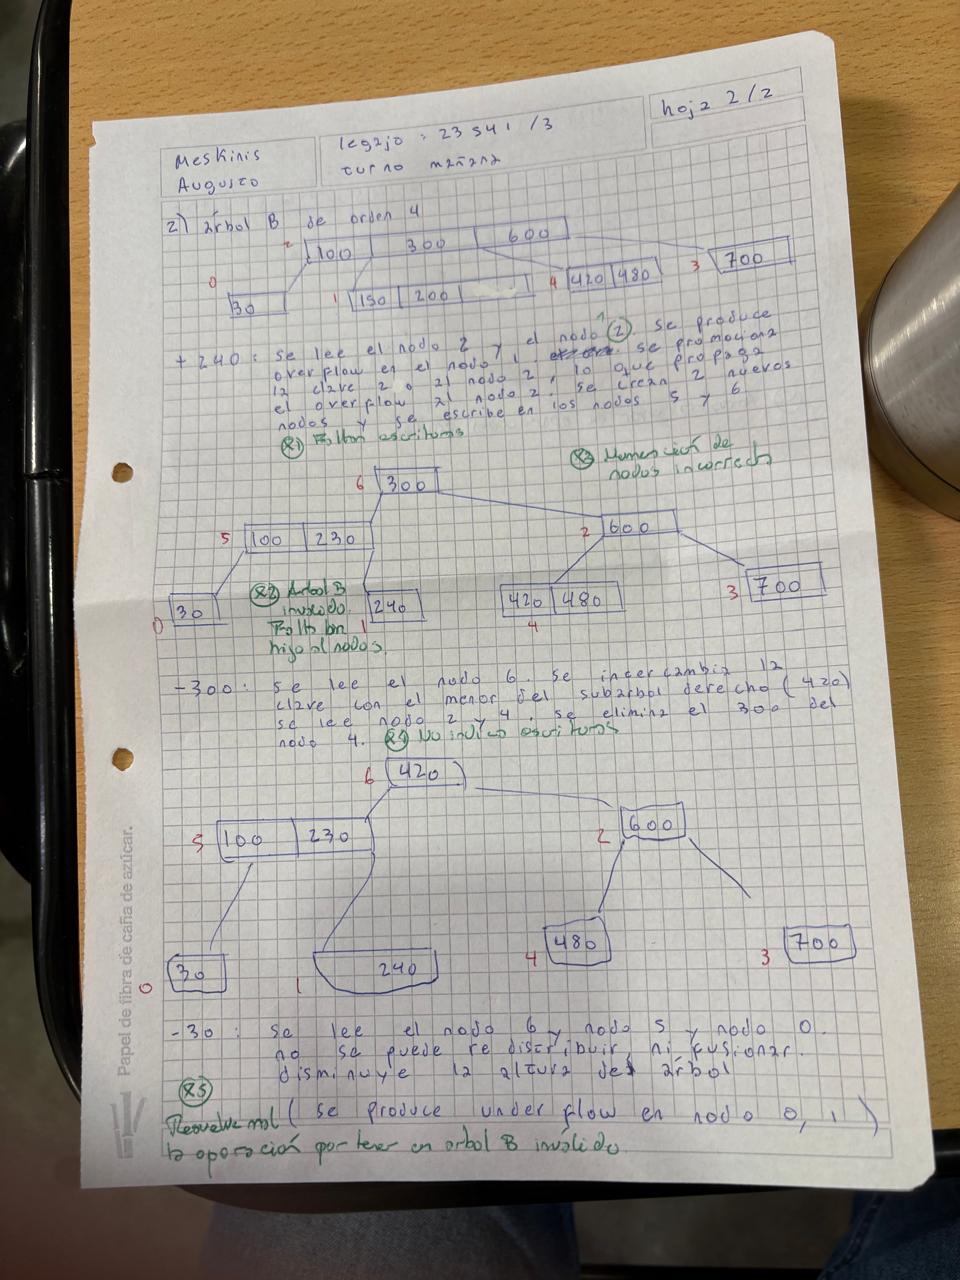 Meskinis
Augusto
legajo : 23541/3
turno mañana
hoja 2/2
2) árbol B de orden 4
2
100 300 600
0
30
1
150 200
4
420 480
3
700
+ 240: se lee el nodo 2 y el nodo 1 (2). se produce
overflow en el nodo 1, se promociona
la clave 2 0 al nodo 2, lo que propaga
el overflow al nodo 2. se crean 2 nuevos
nodos y se escribe en los nodos 5 y 6
(R1) Faltan escrituras
(R3) Numeración de
nodos incorrecta
6
300
5
100 230
2
600
0
30
(R2) Arbol B
invalido.
Faltan
hijo al nodo 5.
1
240
420 480
4
3
700
-300: se lee el nodo 6. se intercambia la
clave con el menor del subárbol derecho (420)
se lee nodo 2 y 4. se elimina el 300 del
nodo 4. (R4) No indica escrituras
6
420
5
100 230
2
600
0
30
1
240
4
480
3
700
-30: se lee el nodo 6 y nodo 5 y nodo 0.
no se puede redistribuir, ni fusionar.
disminuye la altura del árbol
(R5)
(se produce underflow en nodo 0, 1)
Resuelve mal
la operación por tener un arbol B inválido.
Papel de fibra de caña de azúcar.